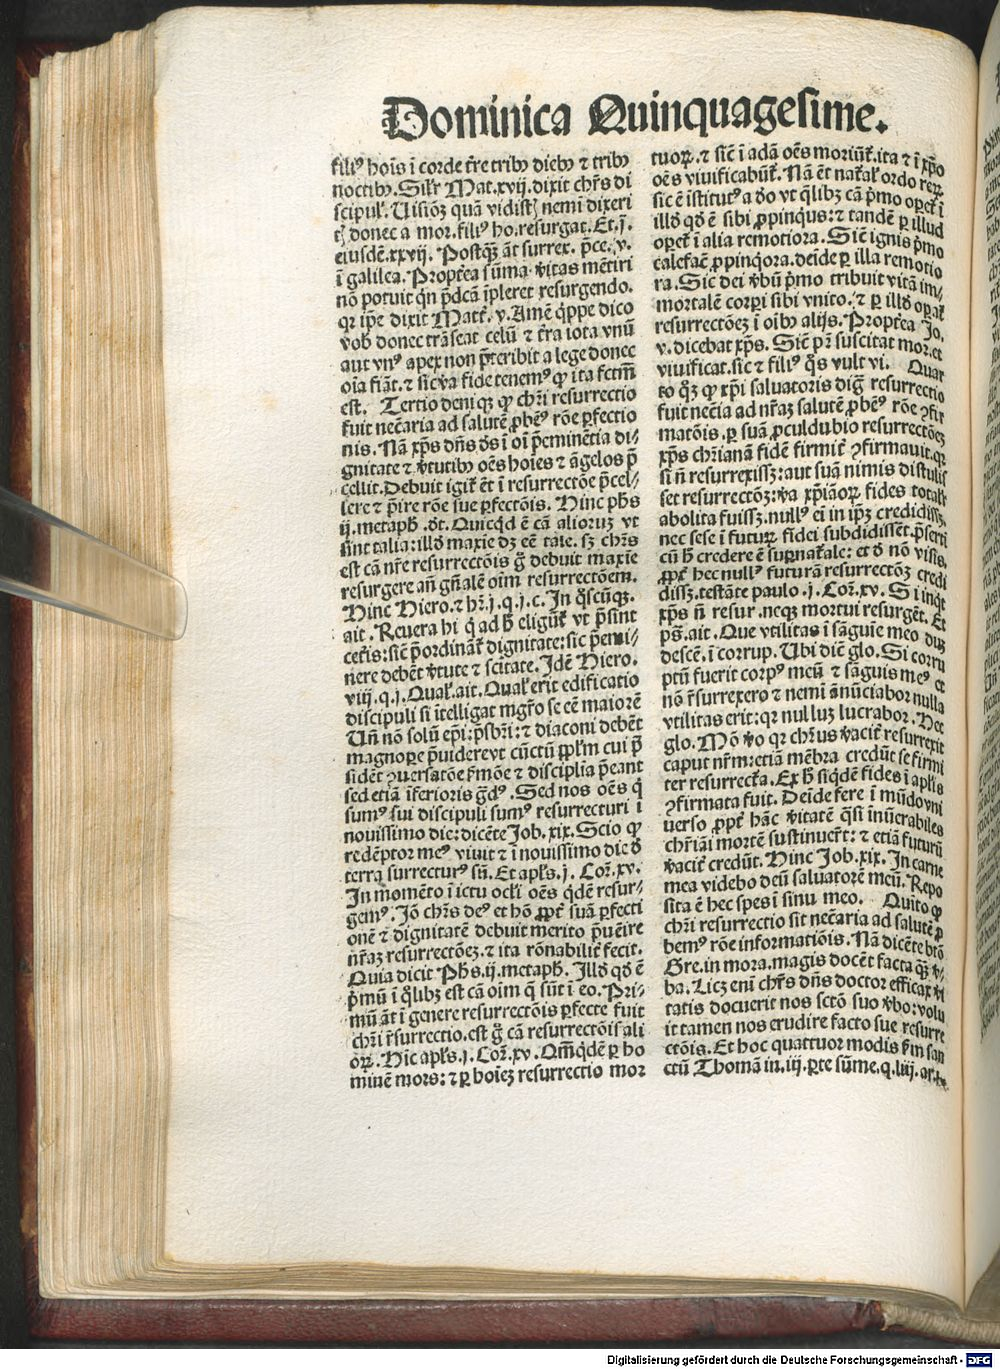 Dominica Quinquagesime.
filiꝰ hoīs ī corde t̄re tribꝫ diebꝫ ⁊ tribꝫ
noctibꝫ. Silr̄ Mat. xvij. dixit chr̄s di
scipul. Uisionē quā vidistꝭ nemini dixeri
tꝭ donec a mor. filiꝰ ho. resurgat. Et. j.
eiusdē. xxvij. Postqꝫ āt surrex. p̄ce. v.
ī galilea. Propt̄ea sūma v̄itas mētiri
nō potuit qn̄ p̄dcā īpleret resurgendo.
qr ip̄e dixit Matt. v. Amē q̄ppe dico
vob donec trāseat celū ⁊ t̄ra iota vnū
aut vnꝰ apex non p̄teribit a lege donec
oīa fiāt. ⁊ sic v̄a fide tenemꝰ ꝙ ita fctm̄
est. Tertio deniqꝫ ꝙ chr̄i resurrectio
fuit nec̄aria ad salutē ꝓbeꝰ rōe ꝑfectio
nis. Nā xp̄s dn̄s dꝰs ī oī p̄eminētia di-
gnitate ⁊ v̄tutibꝫ oēs hoies ⁊ āgelos p̄
cellit. Debuit igit̄ ēt ī resurrectōe p̄cel-
lere ⁊ p̄ire rōe sue ꝑfectōis. Hinc phs
ij. metaph. dt. Quicqd ē cā aliorum vt
sint talia: illd maxīe dꝫ eē tale. sꝫ chr̄s
est cā nr̄e resurrectōis ḡ debuit maxīe
resurgere añ gn̄alē oīm resurrectōem.
Hinc Hiero. ⁊ hr̄. j. q. j. c. In q̄scūqꝫ.
ait. Reuera hi q̄ ad h̄ eligūt̄ vt p̄sint
cet̄is: sic̄ p̄ordināt̄ dignitate: sic p̄emi-
nere debēt v̄tute ⁊ scitate. Idē Hiero.
viij. q. j. Qual. ait. Qual erit edificatio
discipuli si ītelligat mgr̄o se eē maiorē
Un̄ nō solū ep̄i: p̄sbri: ⁊ diaconi debēt
magnopere p̄uiderevt cūctū ppl̄m cui p̄
sidēt ꝯuersatōe s̄mōe ⁊ disciplīa p̄eant
sed etiā īferioris gdꝰ. Sed nos oēs q̄
sumꝰ sui discipuli sumꝰ resurrecturi ī
nouissimo die: dicēte Job. xix. Scio ꝙ
redēptor meꝰ viuit ⁊ ī nouissimo die d̄
terra surrecturꝰ sū. Et apl̄s. j. Cor. xv.
In momēto ī ictu ocl̄i oēs q̄dē resur-
gemꝰ. Jō chr̄s deꝰ et hō ꝓpt̄ suā ꝑfecti
onē ⁊ dignitatē debuit merito p̄ueīre
nr̄aꝫ resurrectōeꝫ. ⁊ ita rōnabilit̄ fecit.
Quia dicit Phs. ij. metaph. Illd qd ē
p̄mū ī qlibꝫ est cā oīm q̄ sūt ī eo. Pri-
mū āt ī genere resurrectōis ꝑfecte fuit
chr̄i r̄surrectio. est ḡ cā resurrectōis ali
orꝝ. Hic apl̄s. j. Cor. xv. Qm̄ qdē ꝑ ho
minē mors: ⁊ ꝑ hoieꝫ resurrectio mor
tuorꝝ. ⁊ sic̄ ī adā oēs moriūt̄. ita ⁊ ī xp̄o
oēs viuificabūt̄. Nā ēt nat̄al ordo rerꝝ
sic ē īstitutꝰ a d̄o vt qlibꝫ cā p̄mo oꝑet̄ ī
illd qd ē sibi ꝓpinqus: ⁊ tandē ꝑ illud
oꝑet̄ ī alia remotiora. Sic̄ ignis p̄mo
calefac̄ ꝓpinqora. deīde ꝑ illa remotio
ra. Sic dei v̄bū p̄mo tribuit vitā im-
mortalē corpi sibi vnito. ⁊ ꝑ illd oꝑat̄
resurrectōeꝫ ī oībꝫ alijs. Propt̄ea Jo.
v. dicebat xp̄s. Sic̄ pr̄ suscitat mor. et
viuificat. sic ⁊ filiꝰ q̄s vult vi. Quar
to qꝫ ꝙ xp̄i saluatoris dig resurrectio
fuit nec̄ia ad nr̄aꝫ salutē ꝓbeꝰ rōe ꝯfir
matōis. ꝑ suā proculdubio resurrectōeꝫ
xp̄s chr̄ianā fidē firmit̄ ꝯfirmauit. qr
si n̄ resurrexissꝫ: aut suā nimis distulis
set resurrectōꝫ: v̄a xp̄iāorꝝ fides totalr̄
abolita fuissꝫ. nullꝰ eī in ip̄ꝫ credidissꝫ.
nec sese ī futurꝝ fidei subdidissēt. p̄serti
cū h̄ credere ē supnat̄ale: et d̄ nō visis.
ꝓpt̄ hec nullꝰ futurā resurrectōꝫ credi
dissꝫ. testāte paulo. j. Cor. xv. Si inqt
xp̄s n̄ resur. neqꝫ mortui resurgēt. Et
ps̄. ait. Que vtilitas ī sāguīe meo duꝫ
descē. ī corrup. Ubi dic̄ glo. Si corru
ptū fuerit corpꝰ meū ⁊ sāguis meꝰ et
nō r̄surrexero ⁊ nemi ānūciabor nulla
vtilitas erit: qr nulluꝫ lucrabor. Hec
glo. Mō v̄o qr chr̄us v̄acit̄ resurrexit
caput nr̄m: etiā mēbra credūt se firmi
ter resurrect̄a. Ex h̄ siqdē fides ī apl̄is
ꝯfirmata fuit. Deīde fere ī mūdo vni
uerso ꝓpt̄ hāc v̄itatē qsi īnūerabiles
chr̄iāi mortē sustinuer̄t: ⁊ etiā futurū
v̄acit̄ credūt. Hinc Job. xix. In carne
mea videbo deū saluatorē meū. Repo
sita ē hec spes ī sinu meo. Quīto ꝙ
chr̄i resurrectio sit nec̄aria ad salutē ꝓ
bemꝰ rōe informatiōis. Nā dicēte btō
Gre. in mora. magis docēt facta qꝫ v̄-
ba. Licꝫ eni chr̄s dn̄s doctor efficax v̄i
tatis docuerit nos sctō suo v̄bo: volu
it tamen nos erudire facto sue resurre
ctōis. Et hoc quattuor modis s̄m san
ctū Thomā in. iij. ꝑte sūme. q. liij. ar.
Digitalisierung gefördert durch die Deutsche Forschungsgemeinschaft - DFG